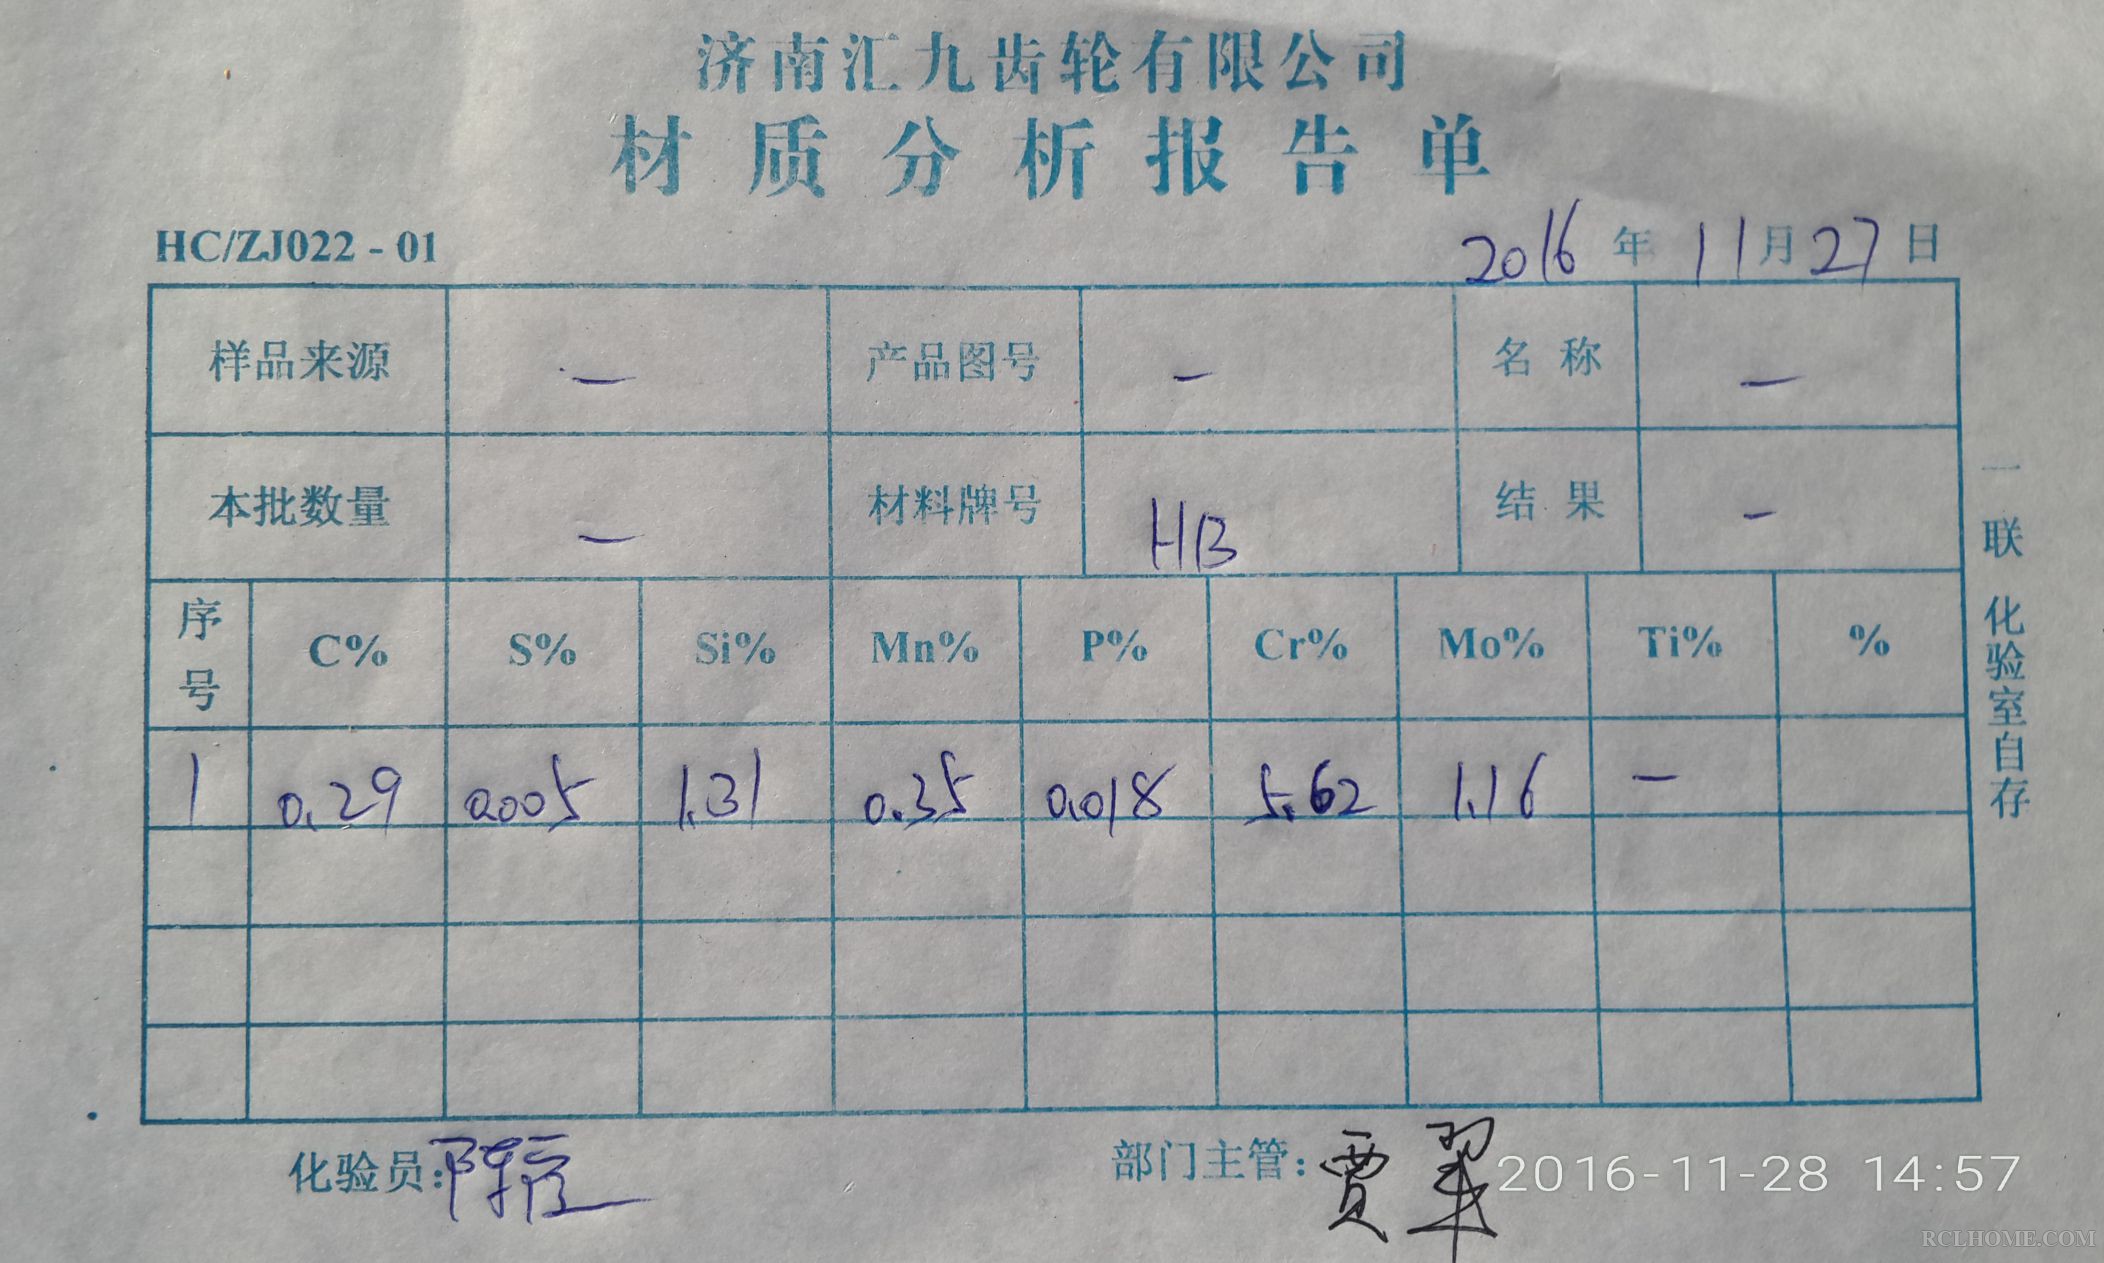 济南汇九齿轮有限公司
材质分析报告单
HC/ZJ022-01 2016年11月27日
样品来源 — 产品图号 — 名称 —
本批数量 — 材料牌号 HB 结果 —
序号 C% S% Si% Mn% P% Cr% Mo% Ti% %
1 0.29 0.005 1.31 0.35 0.018 5.62 1.16 —
一联 化验室自存
化验员: 部门主管: 贾翠
2016-11-28 14:57
RCLHOME.COM